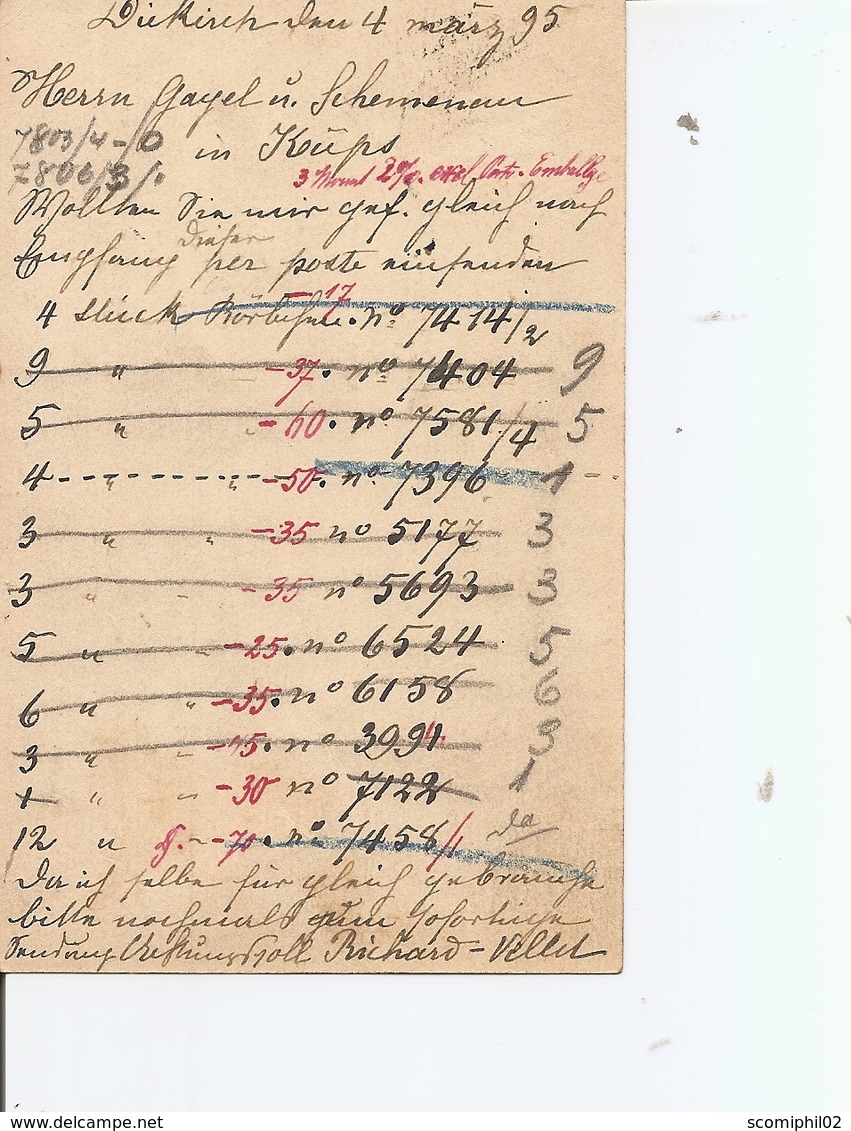 Diekirch den 4 März 95
Herrn Gagel u. Schemenau
7803/4 - 0
in Küps
7806/3
3 Monat 2% excl. Porto. Emballge
Wollten Sie mir gef. gleich nach
Empfang dieser per poste einsenden
4 Stück Körbchen - 17 . no 7414/2
9 " - 37 . no 7404 9
5 " - 60 . no 7581/4 5
4 " " - 50 . no 7396 1
3 " " - 35 no 5177 3
3 " - 35 no 5693 3
5 " " - 25 . no 6524 5
6 " " - 35 . no 6158 6
3 " " - 45 . no 3991 3
1 " " - 30 no 7122 1
12 " - 70 . no 7458/1 da
Da ich selbe für gleich gebrauche
bitte nochmals zum sofortige
Sendung Achtungsvoll Richard-Vellet
scomiphil02